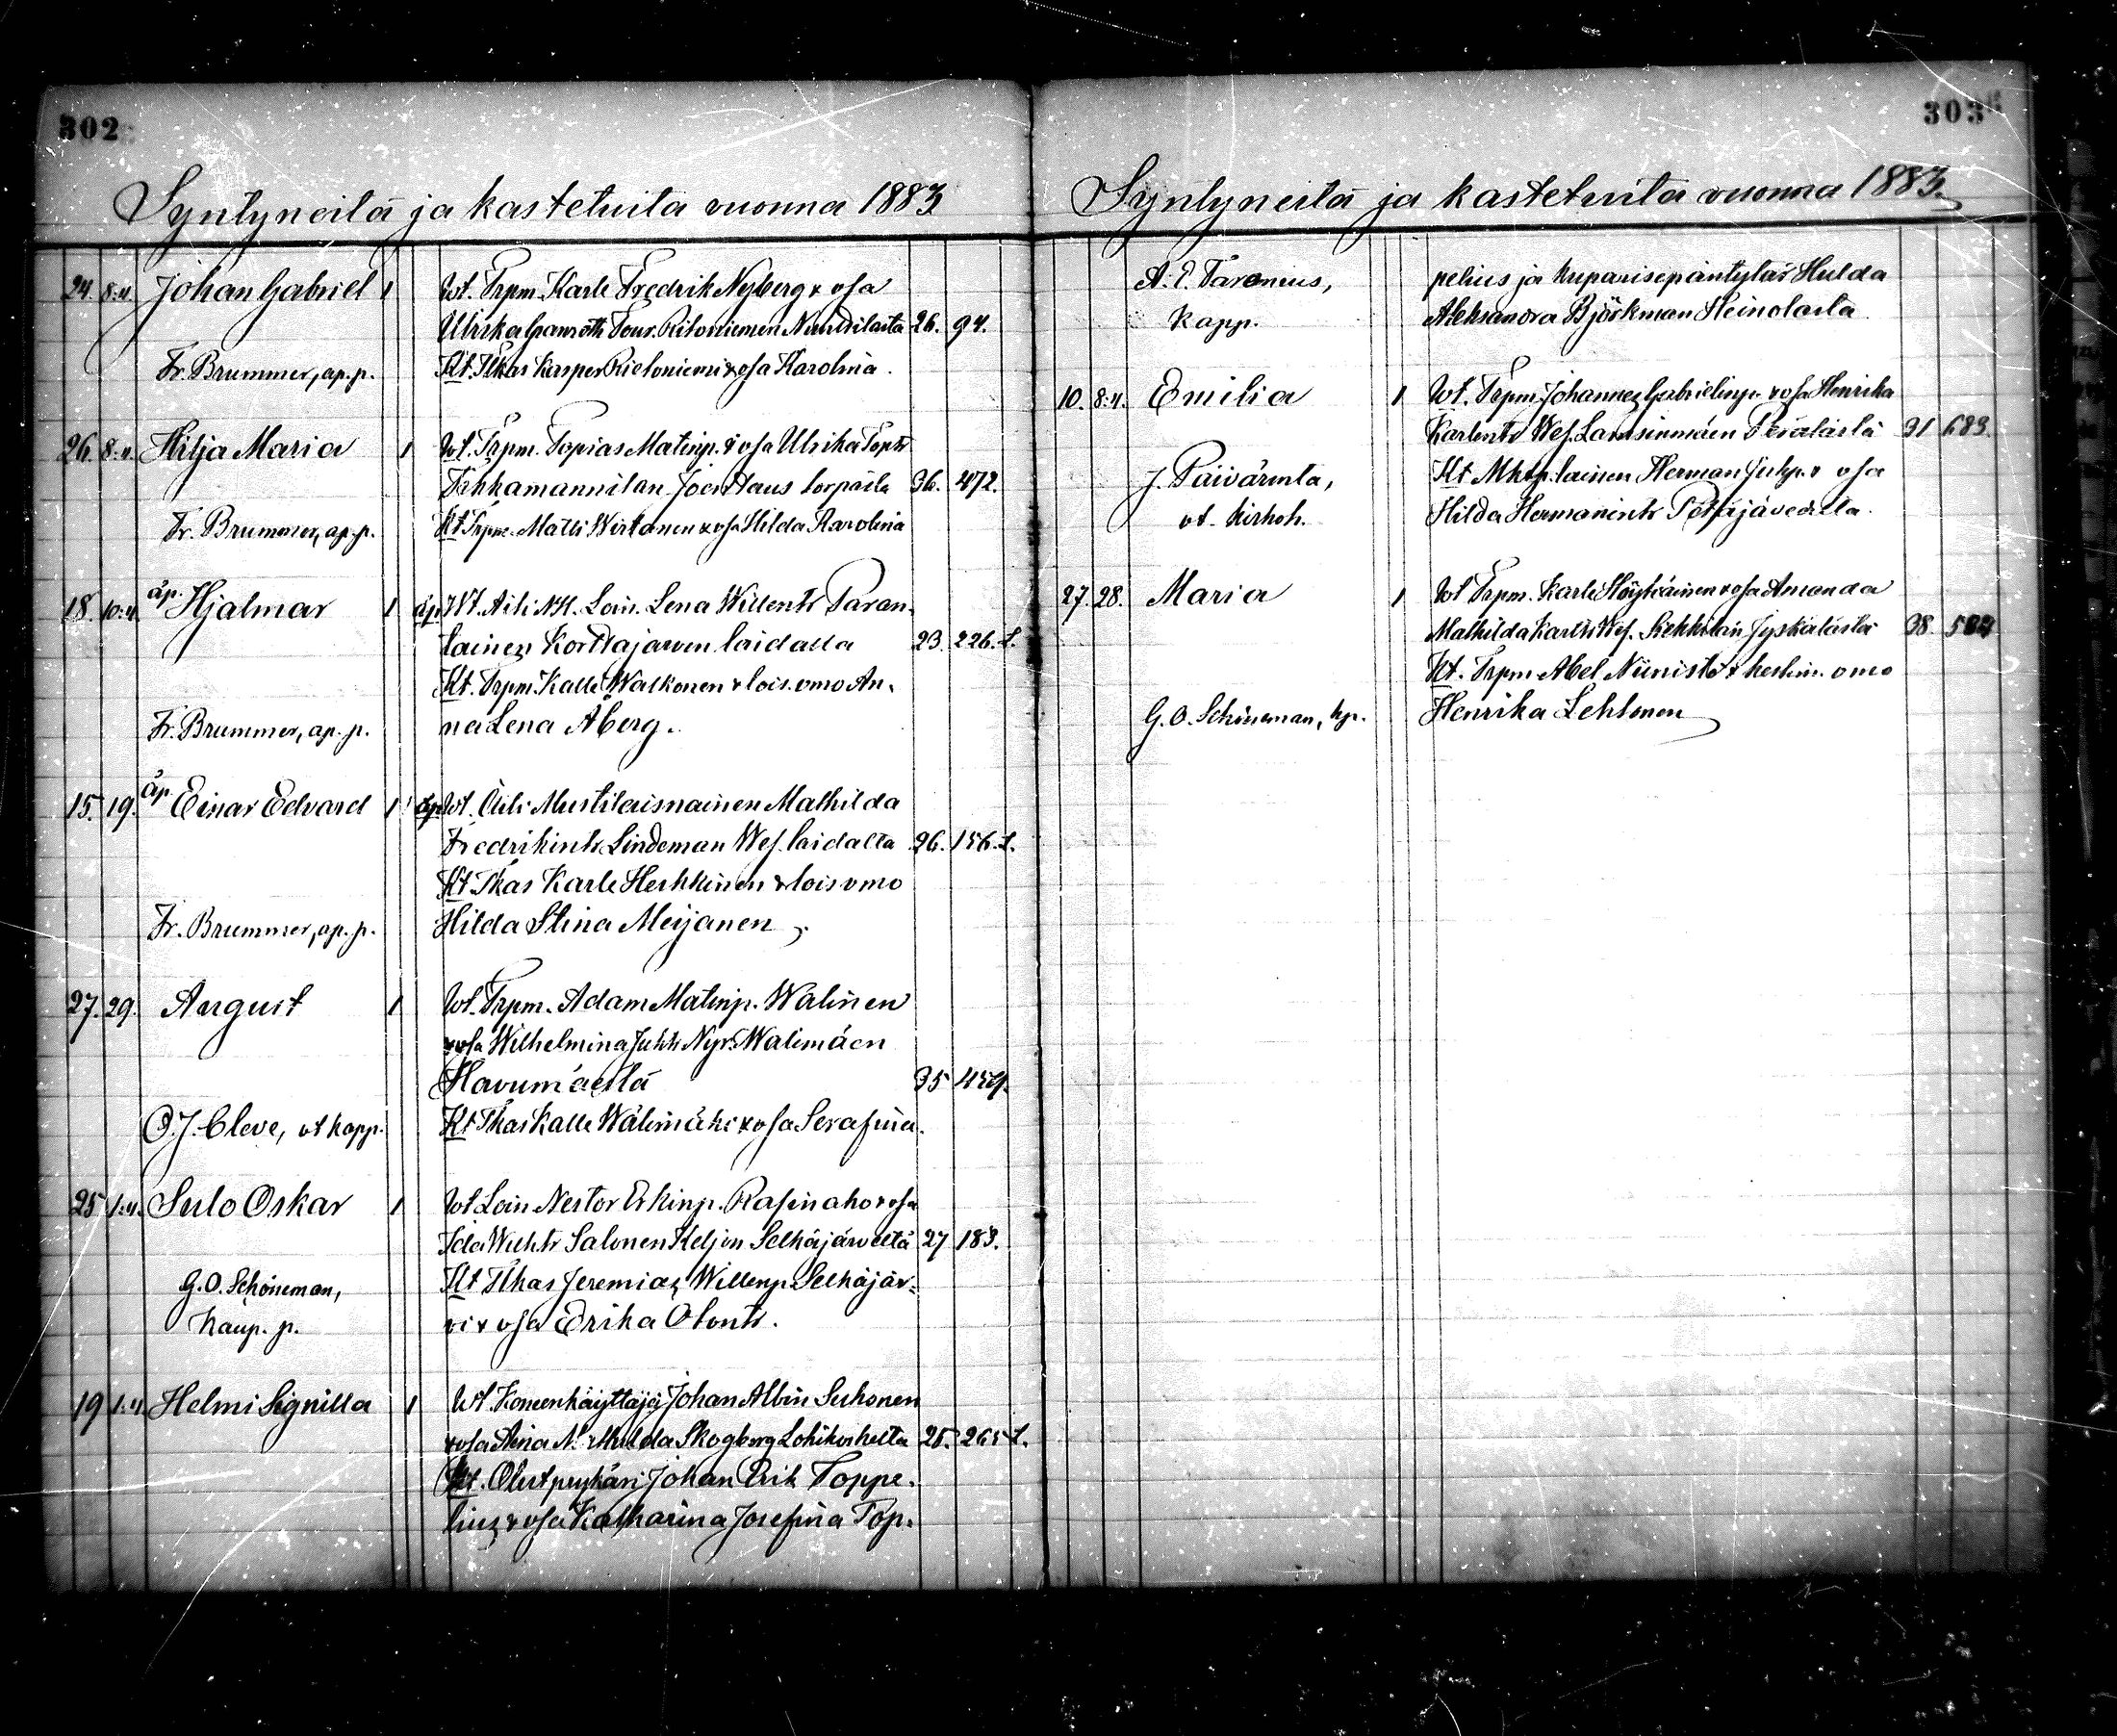 302
Syntyneitä ja kastetuita vuonna 1883
24. 8:4. Johan Gabriel 1 Wt. Trpm. Karle Fredrik Nyberg & vsa
Ulrika Granroth Tour. Ritoniemen Nuutilasta 26. 94.
Fr. Brummer, ap. p. Kt. Ilkas Kasper Rieloniemi & vsa Karolina.
26. 8:4. Hilja Maria 1 Wt. Trpm. Topias Matinp. & vsa Ulrika Toptr
Tähkämannilan Joen taus torpasta 36. 472.
Fr. Brummer, ap. p. Kt Trpm. Matti Wirtanen & vsa Hilda Karolina
18. 10:4. äp. Hjalmar 1 äp. Wt. Äiti N:H. Lois. Lena Willentr Paran-
lainen Korttajärven laidalla 23. 226. L.
Kt. Trpm. Kalle Walkonen & lois. vmo An-
Fr. Brummer, ap. p. na Lena Åberg.
15. 19. äp. Einar Edvard 1 äp. Wt. Äiti Mustilaisnainen Mathilda
Fredrikintr Lindeman Wes. laidalta 26. 156. L.
Kt Ilkas Karle Herkkinen & lois vmo
Fr. Brummer, ap. p. Hilda Stina Meijanen.
27. 29. August 1 Wt. Trpm. Adam Matinp. Walinen
& vsa Wilhelmina Juhtr Nyr. Walimäen
Havumäeltä 35
O. J. Cleve, vt kapp. Kt Ilkas Kalle Wälimäki & vsa Serafina.
25 1:4. Sulo Oskar 1 Wt Lois Nestor Erkinp. Rasinaho & vsa
Ida Wilhtr Salonen Keljon Selkäjärveltä 27 183.
G. O. Schöneman, Kt Ilkas Jeremias Willenp. Selkäjär-
kaup. p. vi & vsa Erika Olontr.
19 1:4. Helmi Signilla 1 Wt. Koneenkäyttäjä Johan Albin Suhonen
& vsa Aina Skogberg Lohikoskelta 25. 265 L.
Kt. Johan Erik Toppe-
lius & vsa Katharina Josefina Top-
303
Syntyneitä ja kastetuita vuonna 1883.
A. P. Taronius, pelius ja kuparisepäntytär Hulda
kapp. Aleksandra Björkman Heinolasta
10. 8:4. Emilia 1 Wt. Trpm. Johannes Gabrielinp. & vsa Henrika
Karlentr Wes. Lansinmäen Pesälästä 31 683.
J. Päivärinta, Kt Herman Juhp. & vsa
vt. kirkoh. Hilda Hermanintr Petäjävedeltä.
27. 28. Maria 1 Wt Trpm. Karle Höytiäinen & vsa Amanda
Mathilda Karltr Wes. Jyskälästä 38 584
Kt. Trpm Abel Niinistö & keskin. vmo
G. O. Schöneman, kp. Henrika Lehtonen